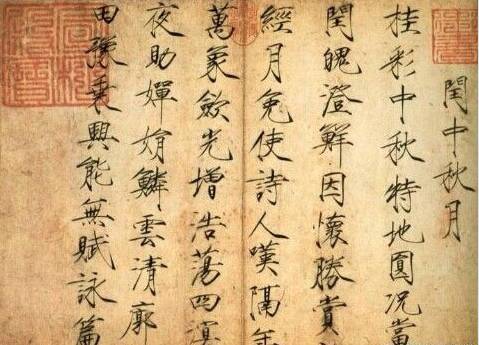 閏中秋月
桂彩中秋特地圓况當
閏魄澄鮮因懷勝賞
經月免使詩人嘆隔年
萬象斂光增浩蕩四溟
夜助嬋娟鱗雲清廓
田豫乘興能無賦詠篇